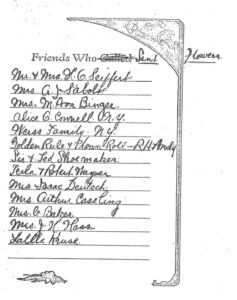 Friends Who Called Sent Flowers
Mr. & Mrs. H. C. Seiffert
Mrs. A. J. Sabols
Mrs. M. Aron Binger
Alice C. Connell N.Y.
Weiss Family - N.Y.
Golden Rule & Down Roll - RH Andy
Sis & Ted Shoemaker
Leila & Robert Wagner
Mrs Isaac Deutsch
Mrs Arthur Cassling
Mrs. C. Baker
Mrs. J. H. Hass
Lallie Kruse